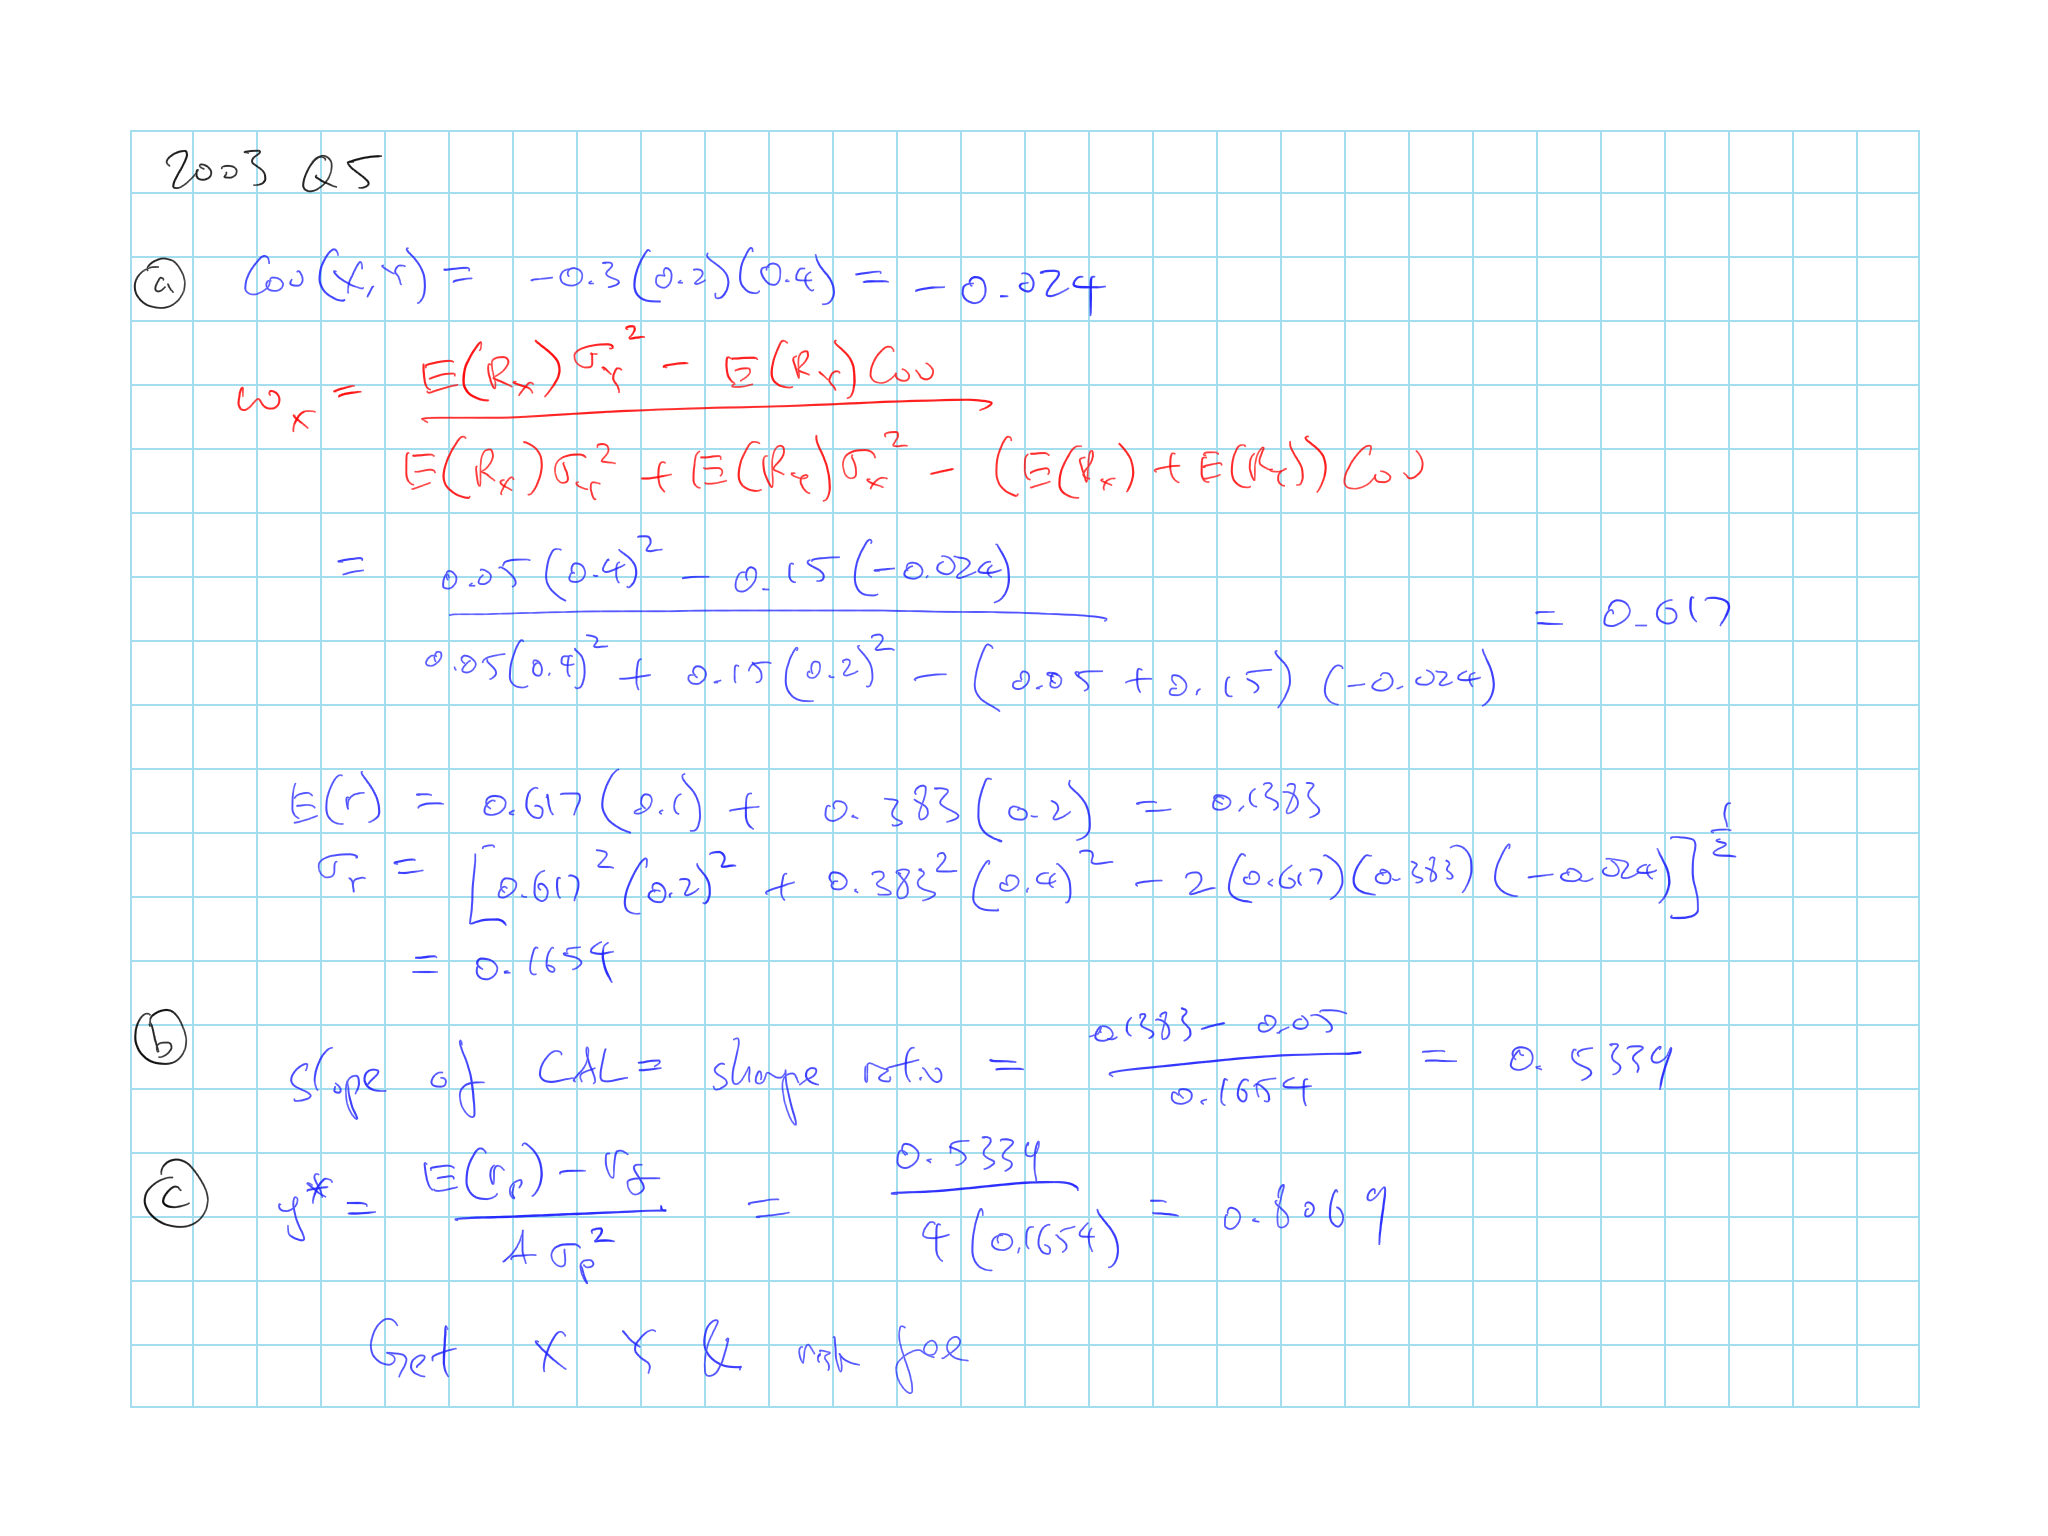 2003 Q5
ⓐ Cov(X,Y) = -0.3(0.2)(0.4) = -0.024
ω_x = (E(R_x)σ_Y² - E(R_Y)Cov) / (E(R_x)σ_Y² + E(R_Y)σ_x² - (E(R_x) + E(R_Y))Cov)
= (0.05(0.4)² - 0.15(-0.024)) / (0.05(0.4)² + 0.15(0.2)² - (0.05 + 0.15)(-0.024)) = 0.617
E(r) = 0.617(0.1) + 0.383(0.2) = 0.1383
σ_r = [0.617²(0.2)² + 0.383²(0.4)² - 2(0.617)(0.383)(-0.024)]^½
= 0.1654
ⓑ slope of CAL = sharpe ratio = (0.1383 - 0.05) / 0.1654 = 0.5339
ⓒ y* = (E(r_p) - r_f) / (Aσ_p²) = 0.5339 / (4(0.1654)) = 0.8069
Get X Y & risk free